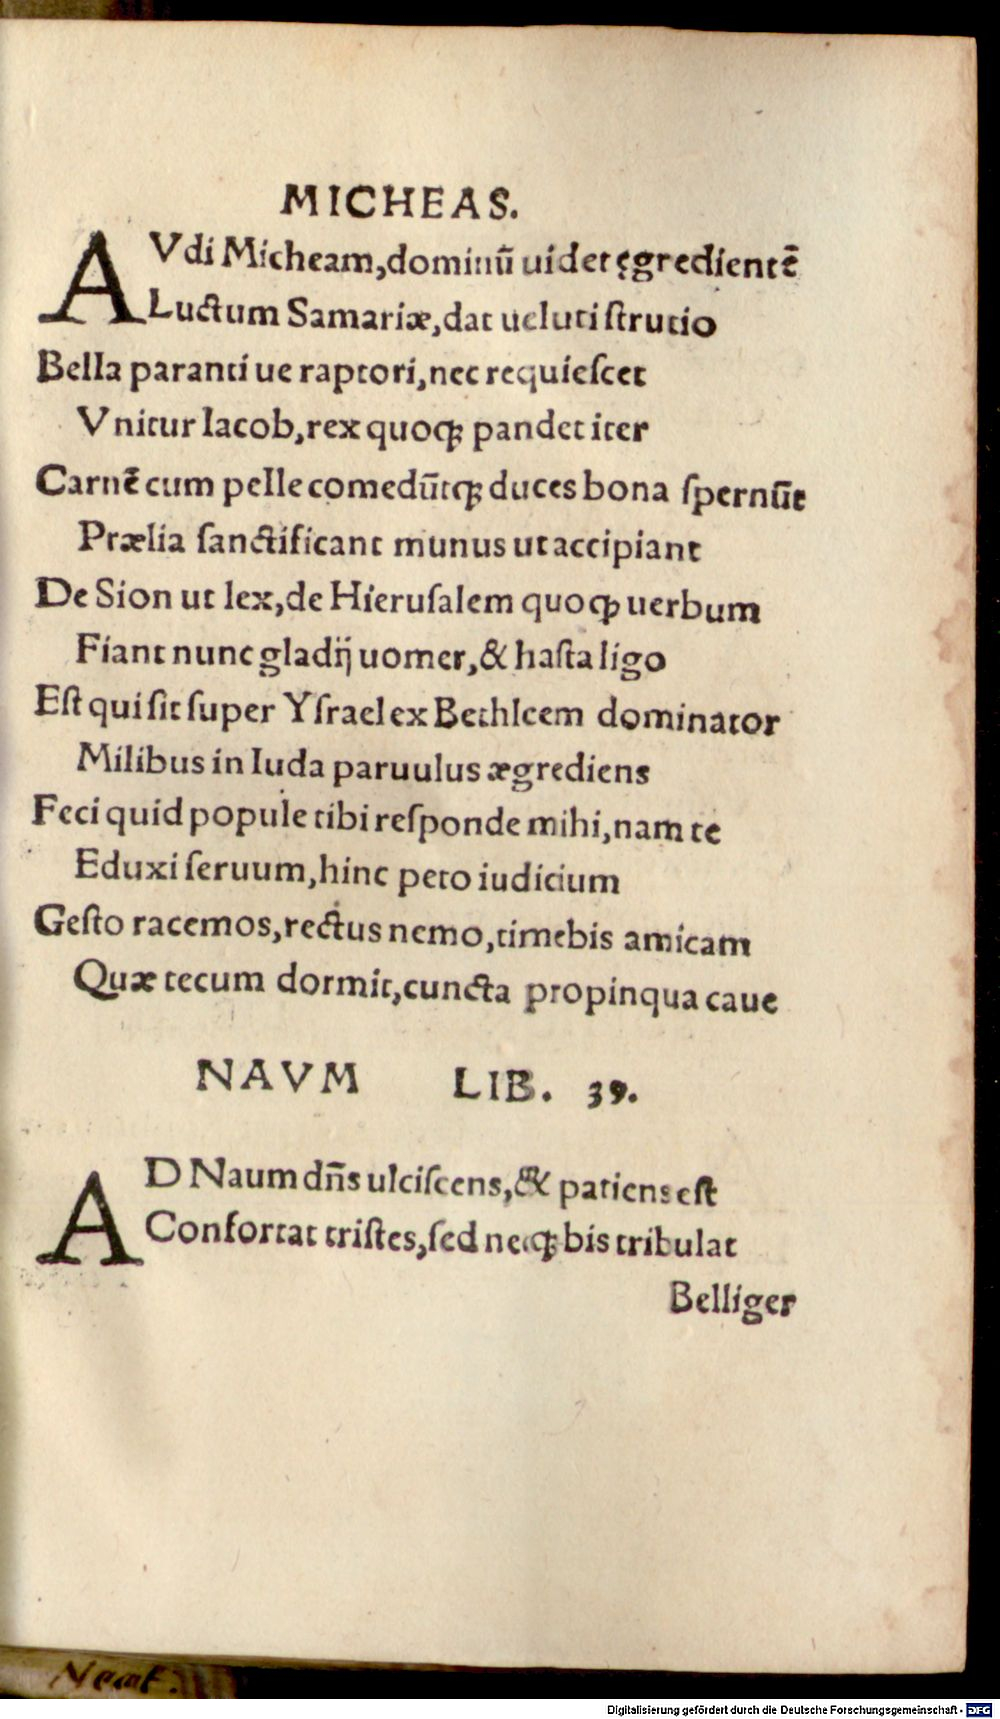 MICHEAS.
AVdi Micheam,dominū uidet ęgredientē
Luctum Samariæ,dat ueluti ſtrutio
Bella paranti ue raptori,nec requieſcet
Vnitur Iacob,rex quoqꝫ pandet iter
Carnē cum pelle comedūtqꝫ duces bona ſpernūt
Prælia ſanctificant munus ut accipiant
De Sion ut lex,de Hieruſalem quoqꝫ uerbum
Fiant nunc gladij uomer,& haſta ligo
Eſt qui ſit ſuper Yſrael ex Bethleem dominator
Milibus in Iuda paruulus ægrediens
Feci quid popule tibi reſponde mihi,nam te
Eduxi ſeruum,hinc peto iudicium
Geſto racemos,rectus nemo,timebis amicam
Quæ tecum dormit,cuncta propinqua caue
NAVM LIB. 39.
AD Naum dñs ulciſcens,& patiens eſt
Confortat triſtes,ſed necqꝫ bis tribulat
Belliger
Digitalisierung gefördert durch die Deutsche Forschungsgemeinschaft - DFG